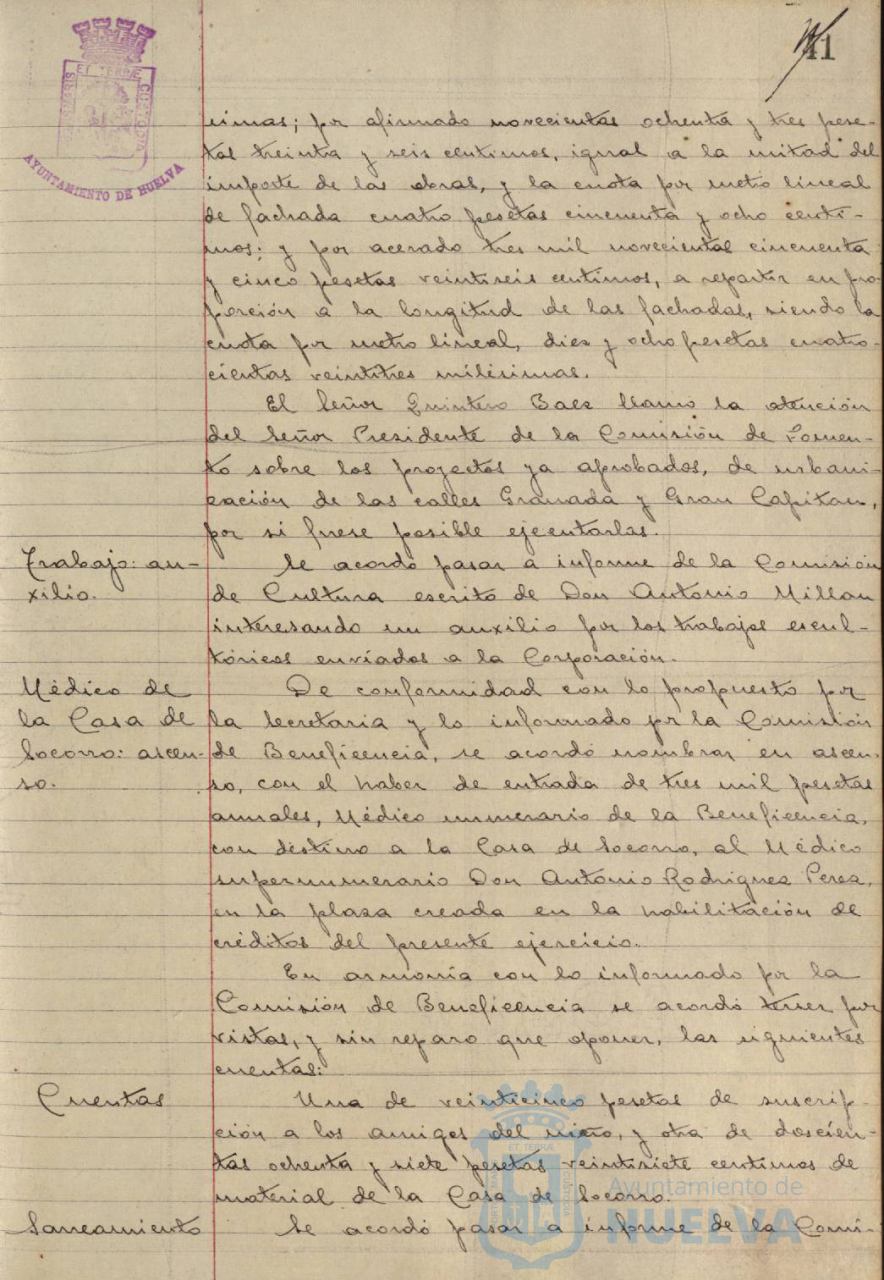 41
PORTUS MARIS ET TERRÆ CUSTODIA
AYUNTAMIENTO DE HUELVA
simas; por afirmado novecientas ochenta y tres pese-
tas treinta y seis centimos, igual a la mitad del
importe de las obras, y la cuota por metro lineal
de fachada cuatro pesetas cincuenta y ocho centi-
mos; y por acerado tres mil novecientas cincuenta
y cinco pesetas veintiseis centimos, a repartir en pro-
porción a la longitud de las fachadas, siendo la
cuota por metro lineal, diez y ocho pesetas cuatro-
cientas veintitres milésimas.
El Señor Quintero Baez llamó la atención
del Señor Presidente de la Comisión de Fomen-
to sobre los proyectos ya aprobados, de urbani-
zación de las calles Granada y Gran Capitan,
por si fuese posible ejecutarlas.
Trabajo: au-
xilio.
Se acordó pasar a informe de la Comisión
de Cultura escrito de Don Antonio Millan
interesando un auxilio por los trabajos escul-
tóricos enviados a la Corporación.
Médico de
la Casa de
Socorro: ascen-
so.
De conformidad con lo propuesto por
la Secretaria y lo informado por la Comisión
de Beneficencia, se acordó nombrar en ascen-
so, con el haber de entrada de tres mil pesetas
anuales, Médico numerario de la Beneficencia,
con destino a la Casa de Socorro, al Médico
supernumerario Don Antonio Rodriguez Perez,
en la plaza creada en la habilitación de
créditos del presente ejercicio.
En armonía con lo informado por la
Comisión de Beneficencia se acordó tener por
vistas, y sin reparo que oponer, las siguientes
cuentas:
Cuentas
Una de veinticinco pesetas de suscrip-
ción a los amigos del niño, y otra de doscien-
tas ochenta y siete pesetas veintisiete centimos de
material de la Casa de Socorro.
Saneamiento
Se acordó pasar a informe de la Comi-
Ayuntamiento de
HUELVA